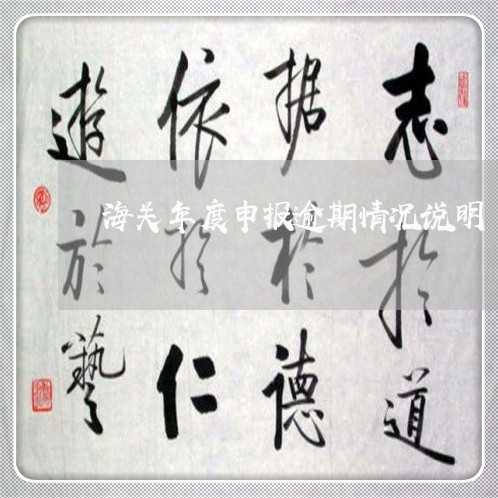 志於道
据於德
依於仁
遊於藝
海关年度申报逾期情况说明